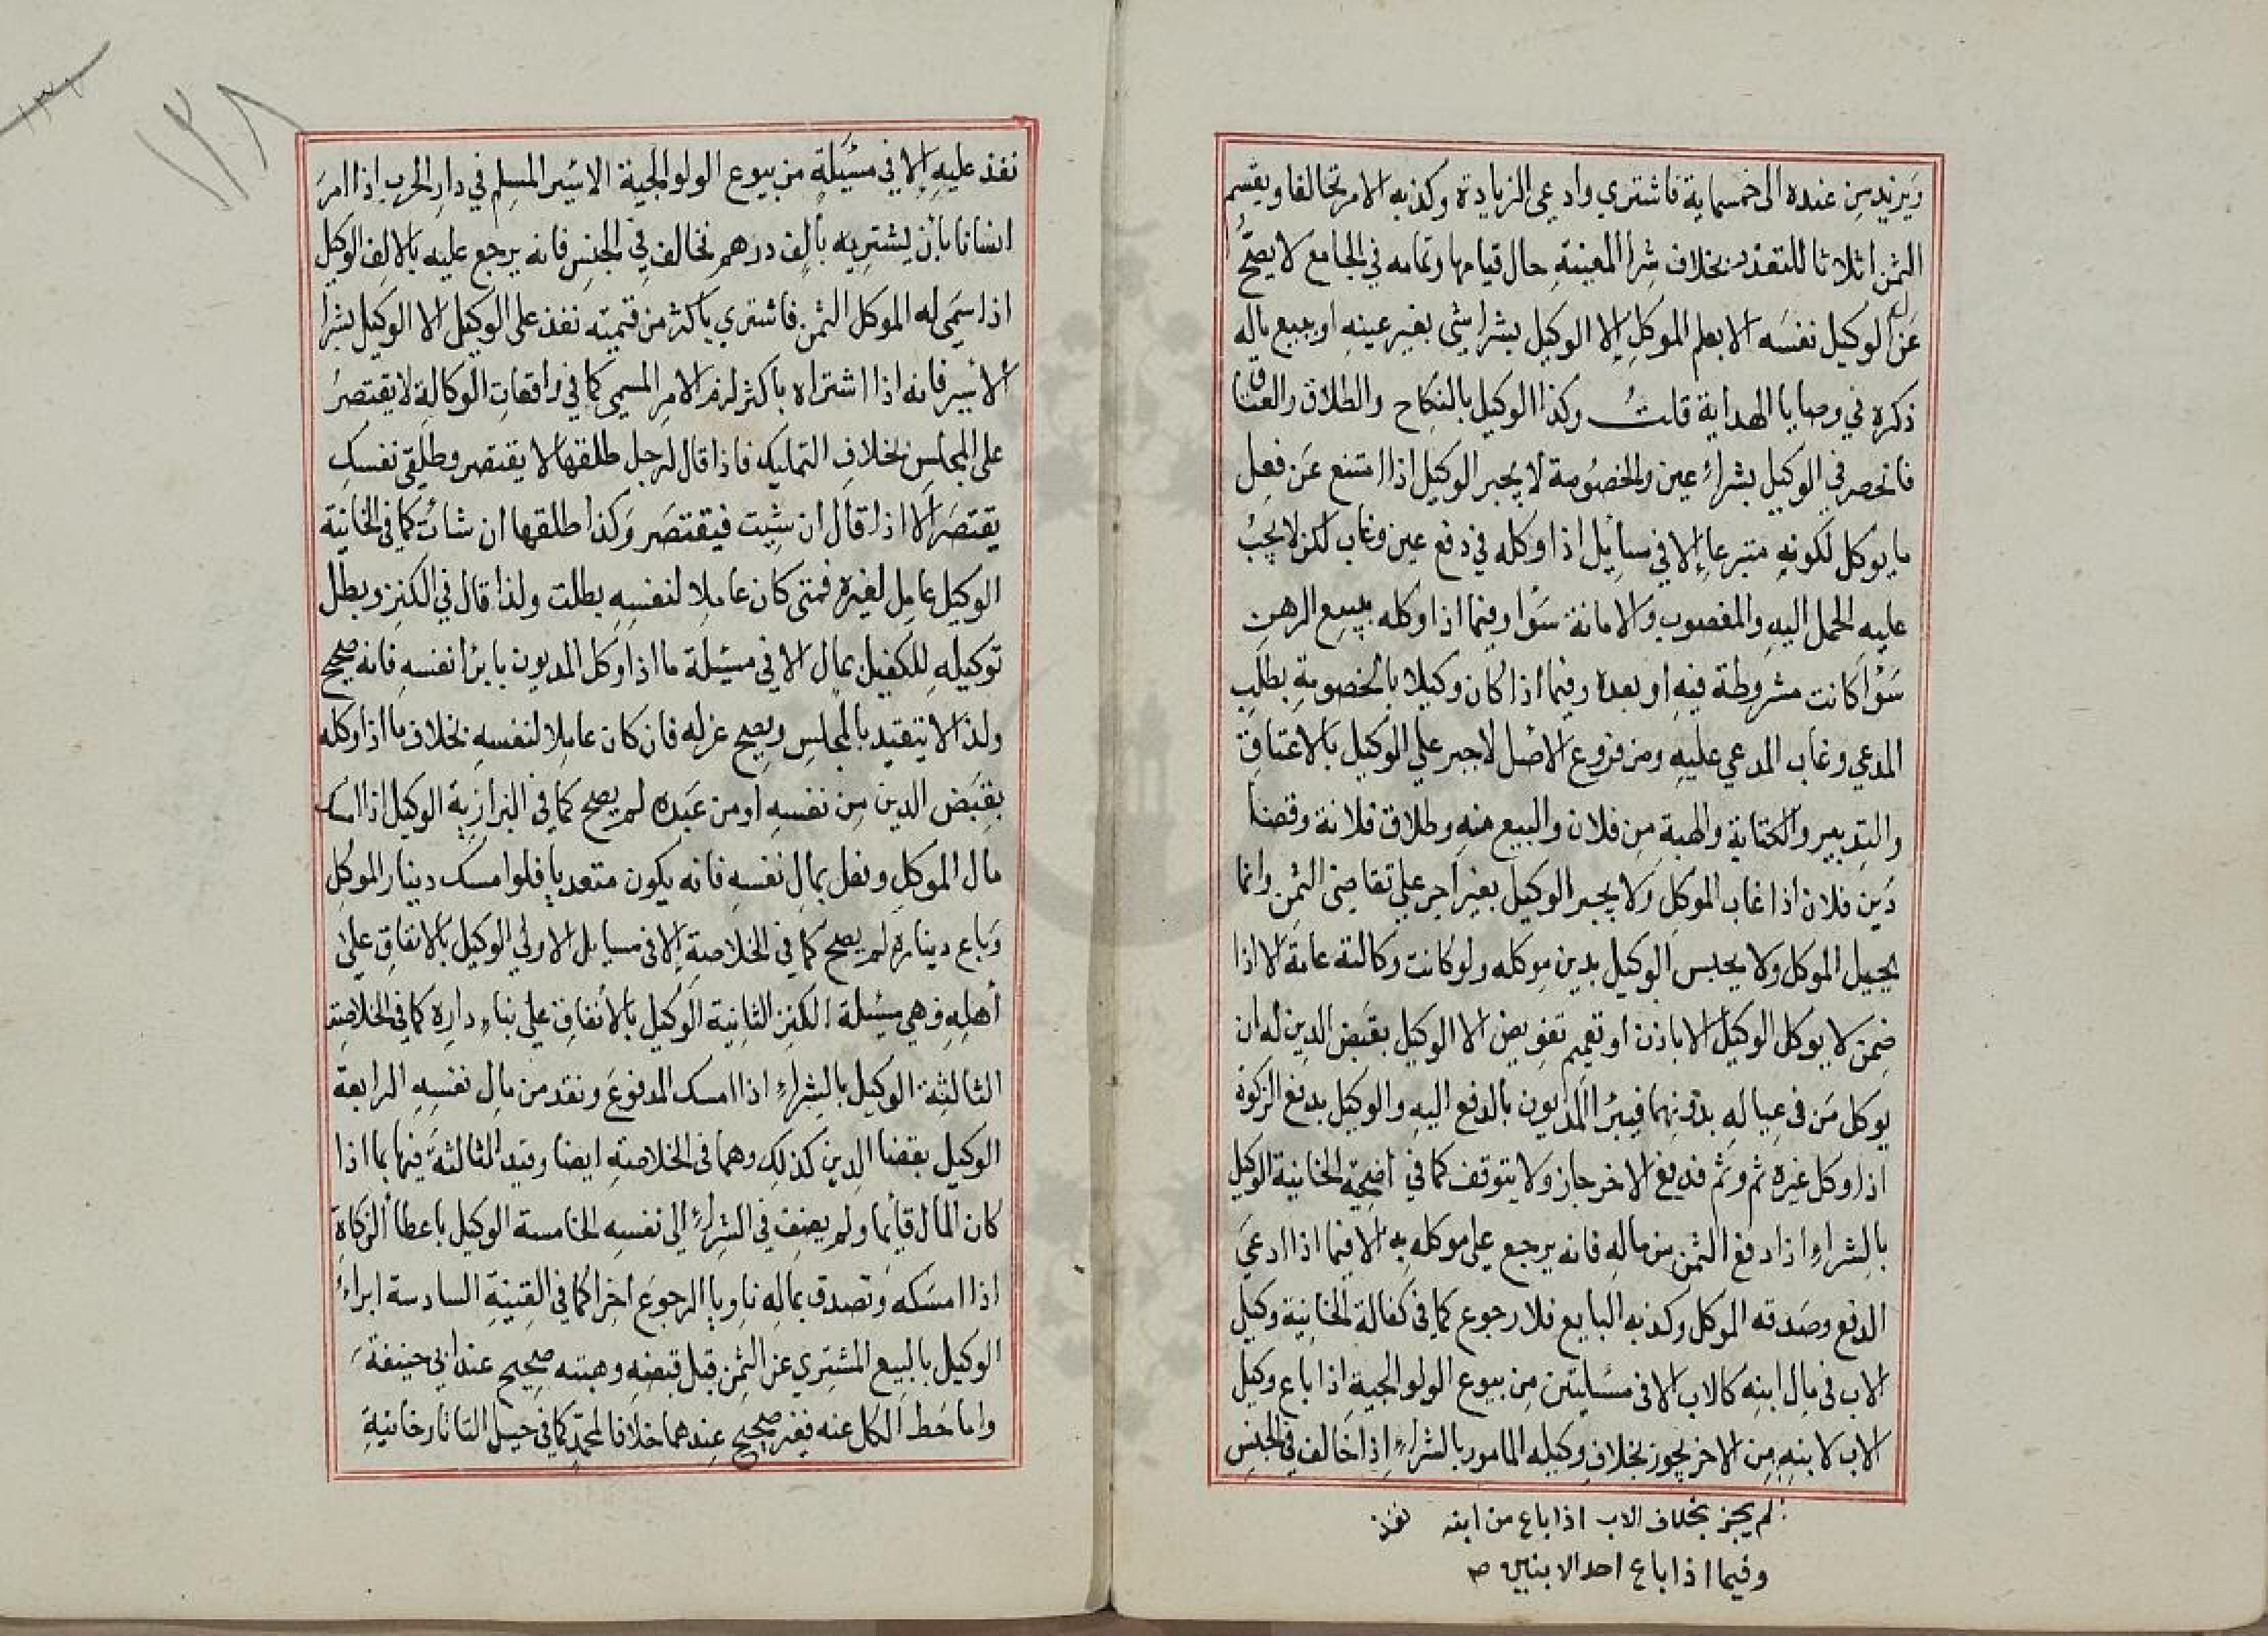 ويزيد من عنده الى خمسماية فاشتري وادعى الزيادة وكذبه الامر تحالفا ويقسم
الثمن اثلاثا للتعذر بخلاف شرا المعينة حال قيامها وتمامه في الجامع لا يصح
عزل الوكيل نفسه الا بعلم الموكل الا الوكيل بشرا شي بغير عينه او ببيع ماله
ذكره في وصايا الهداية قلت وكذا الوكيل بالنكاح والطلاق والعتاق
فانحصر في الوكيل بشراء عين والخصومة لا يجبر الوكيل اذا امتنع عن فعل
ما يوكل لكونه متبرعا الا في مسائل اذا وكله في دفع عين وغاب لكن لا يجب
عليه الحمل اليه والمغصوب والامانة سوا وفيما اذا وكله ببيع الرهن
سوا كانت مشروطة فيه او بعده وفيما اذا كان وكيلا بالخصومة بطلب
المدعي وغاب المدعي عليه ومن فروع الاصل لا جبر علي الوكيل بالاعتاق
والتدبير والكتابة والهبة من فلان والبيع منه وطلاق فلانة وقضا
دين فلان اذا غاب الموكل ولا يجبر الوكيل بغير اجر علي تقاضى الثمن وانما
يحيل الموكل ولا يحبس الوكيل بدين موكله ولو كانت وكالته عامة الا اذا
ضمن لا يوكل الوكيل الا باذن او تعميم تفويض الا الوكيل بقبض الدين له ان
يوكل من في عياله بدونهما فيبرا المديون بالدفع اليه والوكيل بدفع الزكوة
اذا وكل غيره ثم وثم فدفع الاخر جاز ولا يتوقف كما في اضحية الخانية الوكيل
بالشراء اذا دفع الثمن من ماله فانه يرجع على موكله به الا فيما اذا ادعى
الدفع وصدقه الموكل وكذبه البايع فلا رجوع كما في كفالة الخانية وكيل
الاب في مال ابنه كالاب الا في مسئلتين من بيوع الولوالجية اذا باع وكيل
الاب لابنه من الاخر يجوز بخلاف وكيله المامور بالشراء اذا خالف في الجنس
لم يجز بخلاف الاب اذا باع من ابنه
وفيما اذا باع احد الابنين صح
نفذ
١٢٨
١٣١
نفذ عليه الا في مسئلة من بيوع الولوالجية الاسير المسلم في دار الحرب اذا امر
انسانا بأن يشتريه بألف درهم فخالف في الجنس فانه يرجع عليه بالالف الوكيل
اذا سمى له الموكل الثمن فاشتري باكثر من قيمته نفذ على الوكيل الا الوكيل بشرا
الاسير فانه اذا اشتراه باكثر لزم الامر المسمى كما في واقعات الوكالة لا يقتصر
على المجلس بخلاف التمليك فاذا قال لرجل طلقها لا يقتصر وطلقي نفسك
يقتصر الا اذا قال ان شيت فيقتصر وكذا طلقها ان شائت كما في الخانية
الوكيل عامل لغيره فمتى كان عاملا لنفسه بطلت ولذا قال في الكنز وبطل
توكيله للكفيل بمال الا في مسئلة ما اذا وكل المديون بابرا نفسه فانه صحيح
ولذا لا يتقيد بالمجلس ويصح عزله فان كان عاملا لنفسه بخلاف ما اذا وكله
بقبض الدين من نفسه او من عبده لم يصح كما في البزازية الوكيل اذا امسك
مال الموكل وفعل بمال نفسه فانه يكون متعديا فلو امسك دينار الموكل
وباع ديناره لم يصح كما في الخلاصة الا في مسايل الاولي الوكيل بالانفاق علي
أهله وهي مسئلة الكنز الثانية الوكيل بالأنفاق علي بناء داره كما في الخلاصة
الثالثة الوكيل بالشراء اذا امسك المدفوع ونقد من مال نفسه الرابعة
الوكيل بقضا الدين كذلك وهما في الخلاصة ايضا وقيد الثالثة فيها بما اذا
كان المال قأيما ولم يضف في الشراء الي نفسه الخامسة الوكيل باعطأ الزكاة
اذا امسكه وتصدق بماله ناويا الرجوع اخرا كما في القنية السادسة ابراء
الوكيل بالبيع المشتري عن الثمن قبل قبضه وهبته صحيح عند ابي حنيفة
واما حط الكل عنه فغير صحيح عندهما خلافا لمحمد كما في حيل التاتارخانية